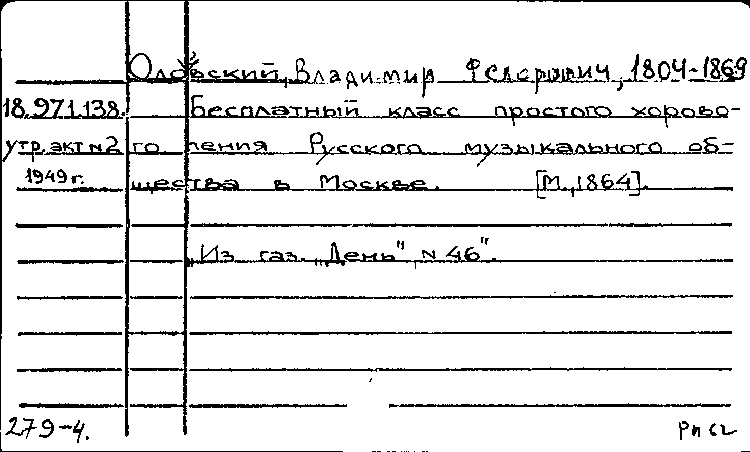 Одоевский, Владимир Федорович, 1804-1869
18.971.138. Бесплатный класс простого хорово-
утр. акт N2 го пения Русского музыкального об-
1949 г. щества в Москве. [М., 1864].
„Из газ. „День", N 46".
279-4. Рп 62